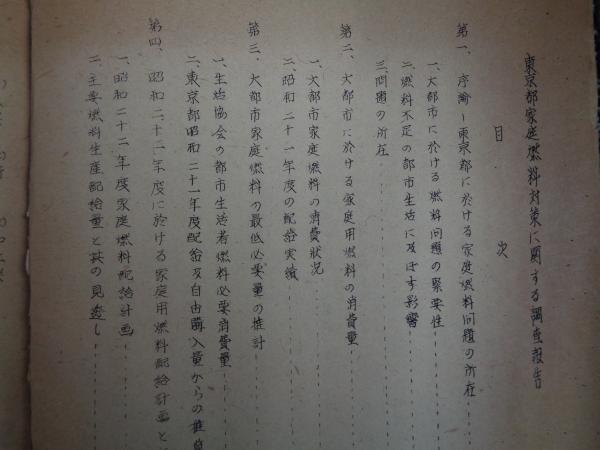 東京都家庭燃料対策に関する調査報告
目次
第一、序論ー東京都に於ける家庭燃料問題の所在
一、大都市に於ける燃料問題の緊要性
二、燃料不足の都市生活に及ぼす影響
三、問題の所在
第二、大都市に於ける家庭用燃料の消費量
一、大都市家庭燃料の消費状況
二、昭和二十一年度の配給実績
第三、大都市家庭燃料の最低必要量の推計
一、生活協会の都市生活者燃料必要消費量
二、東京都昭和二十一年度配給及自由購入量からの推
第四、昭和二十二年度に於ける家庭用燃料配給計画と
一、昭和二十二年度家庭燃料配給計画
二、主要燃料生産配給量と其の見透し